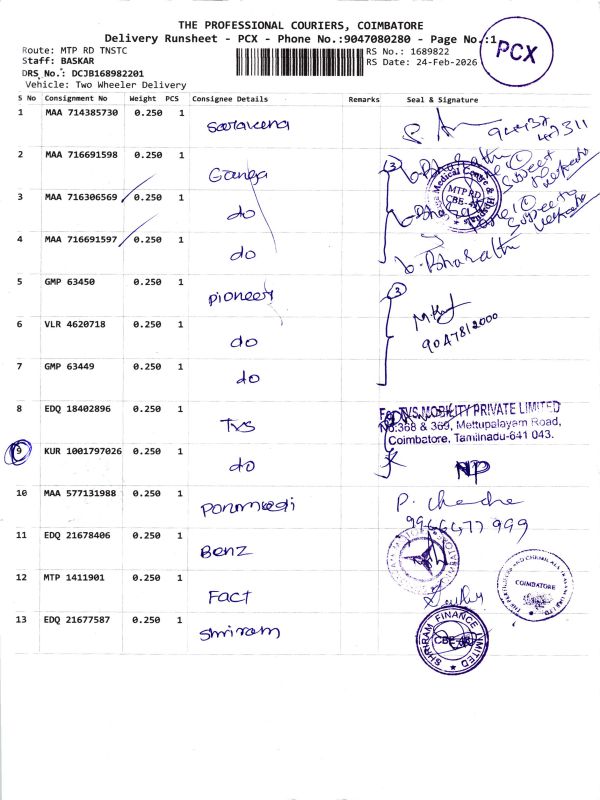 THE PROFESSIONAL COURIERS, COIMBATORE
Delivery Runsheet - PCX - Phone No.:9047080280 - Page No.:1
PCX
Route: MTP RD TNSTC
RS No.: 1689822
Staff: BASKAR
RS Date: 24-Feb-2026
DRS No.: DCJB168982201
Vehicle: Two Wheeler Delivery
S No Consignment No Weight PCS Consignee Details Remarks Seal & Signature
1 MAA 714385730 0.250 1 Saravana
2 MAA 716691598 0.250 1 Ganga
3
3 MAA 716306569 0.250 1 do
Medical Centre &
MTP RD
CBE-43
4 MAA 716691597 0.250 1 do
b. Bharathi
5 GMP 63450 0.250 1 pioneer
3
6 VLR 4620718 0.250 1 do
9047812000
7 GMP 63449 0.250 1 do
8 EDQ 18402896 0.250 1 TVS
For TVS MOBILITY PRIVATE LIMITED
No:368 & 369, Mettupalayam Road,
Coimbatore, Tamilnadu-641 043.
9 KUR 1001797026 0.250 1 do
NP
10 MAA 577131988 0.250 1
P.
9966477999
11 EDQ 21678406 0.250 1 Benz
12 MTP 1411901 0.250 1 Fact
COIMBATORE
13 EDQ 21677587 0.250 1 Shriram
SHRIRAM FINANCE LIMITED
CBE-43